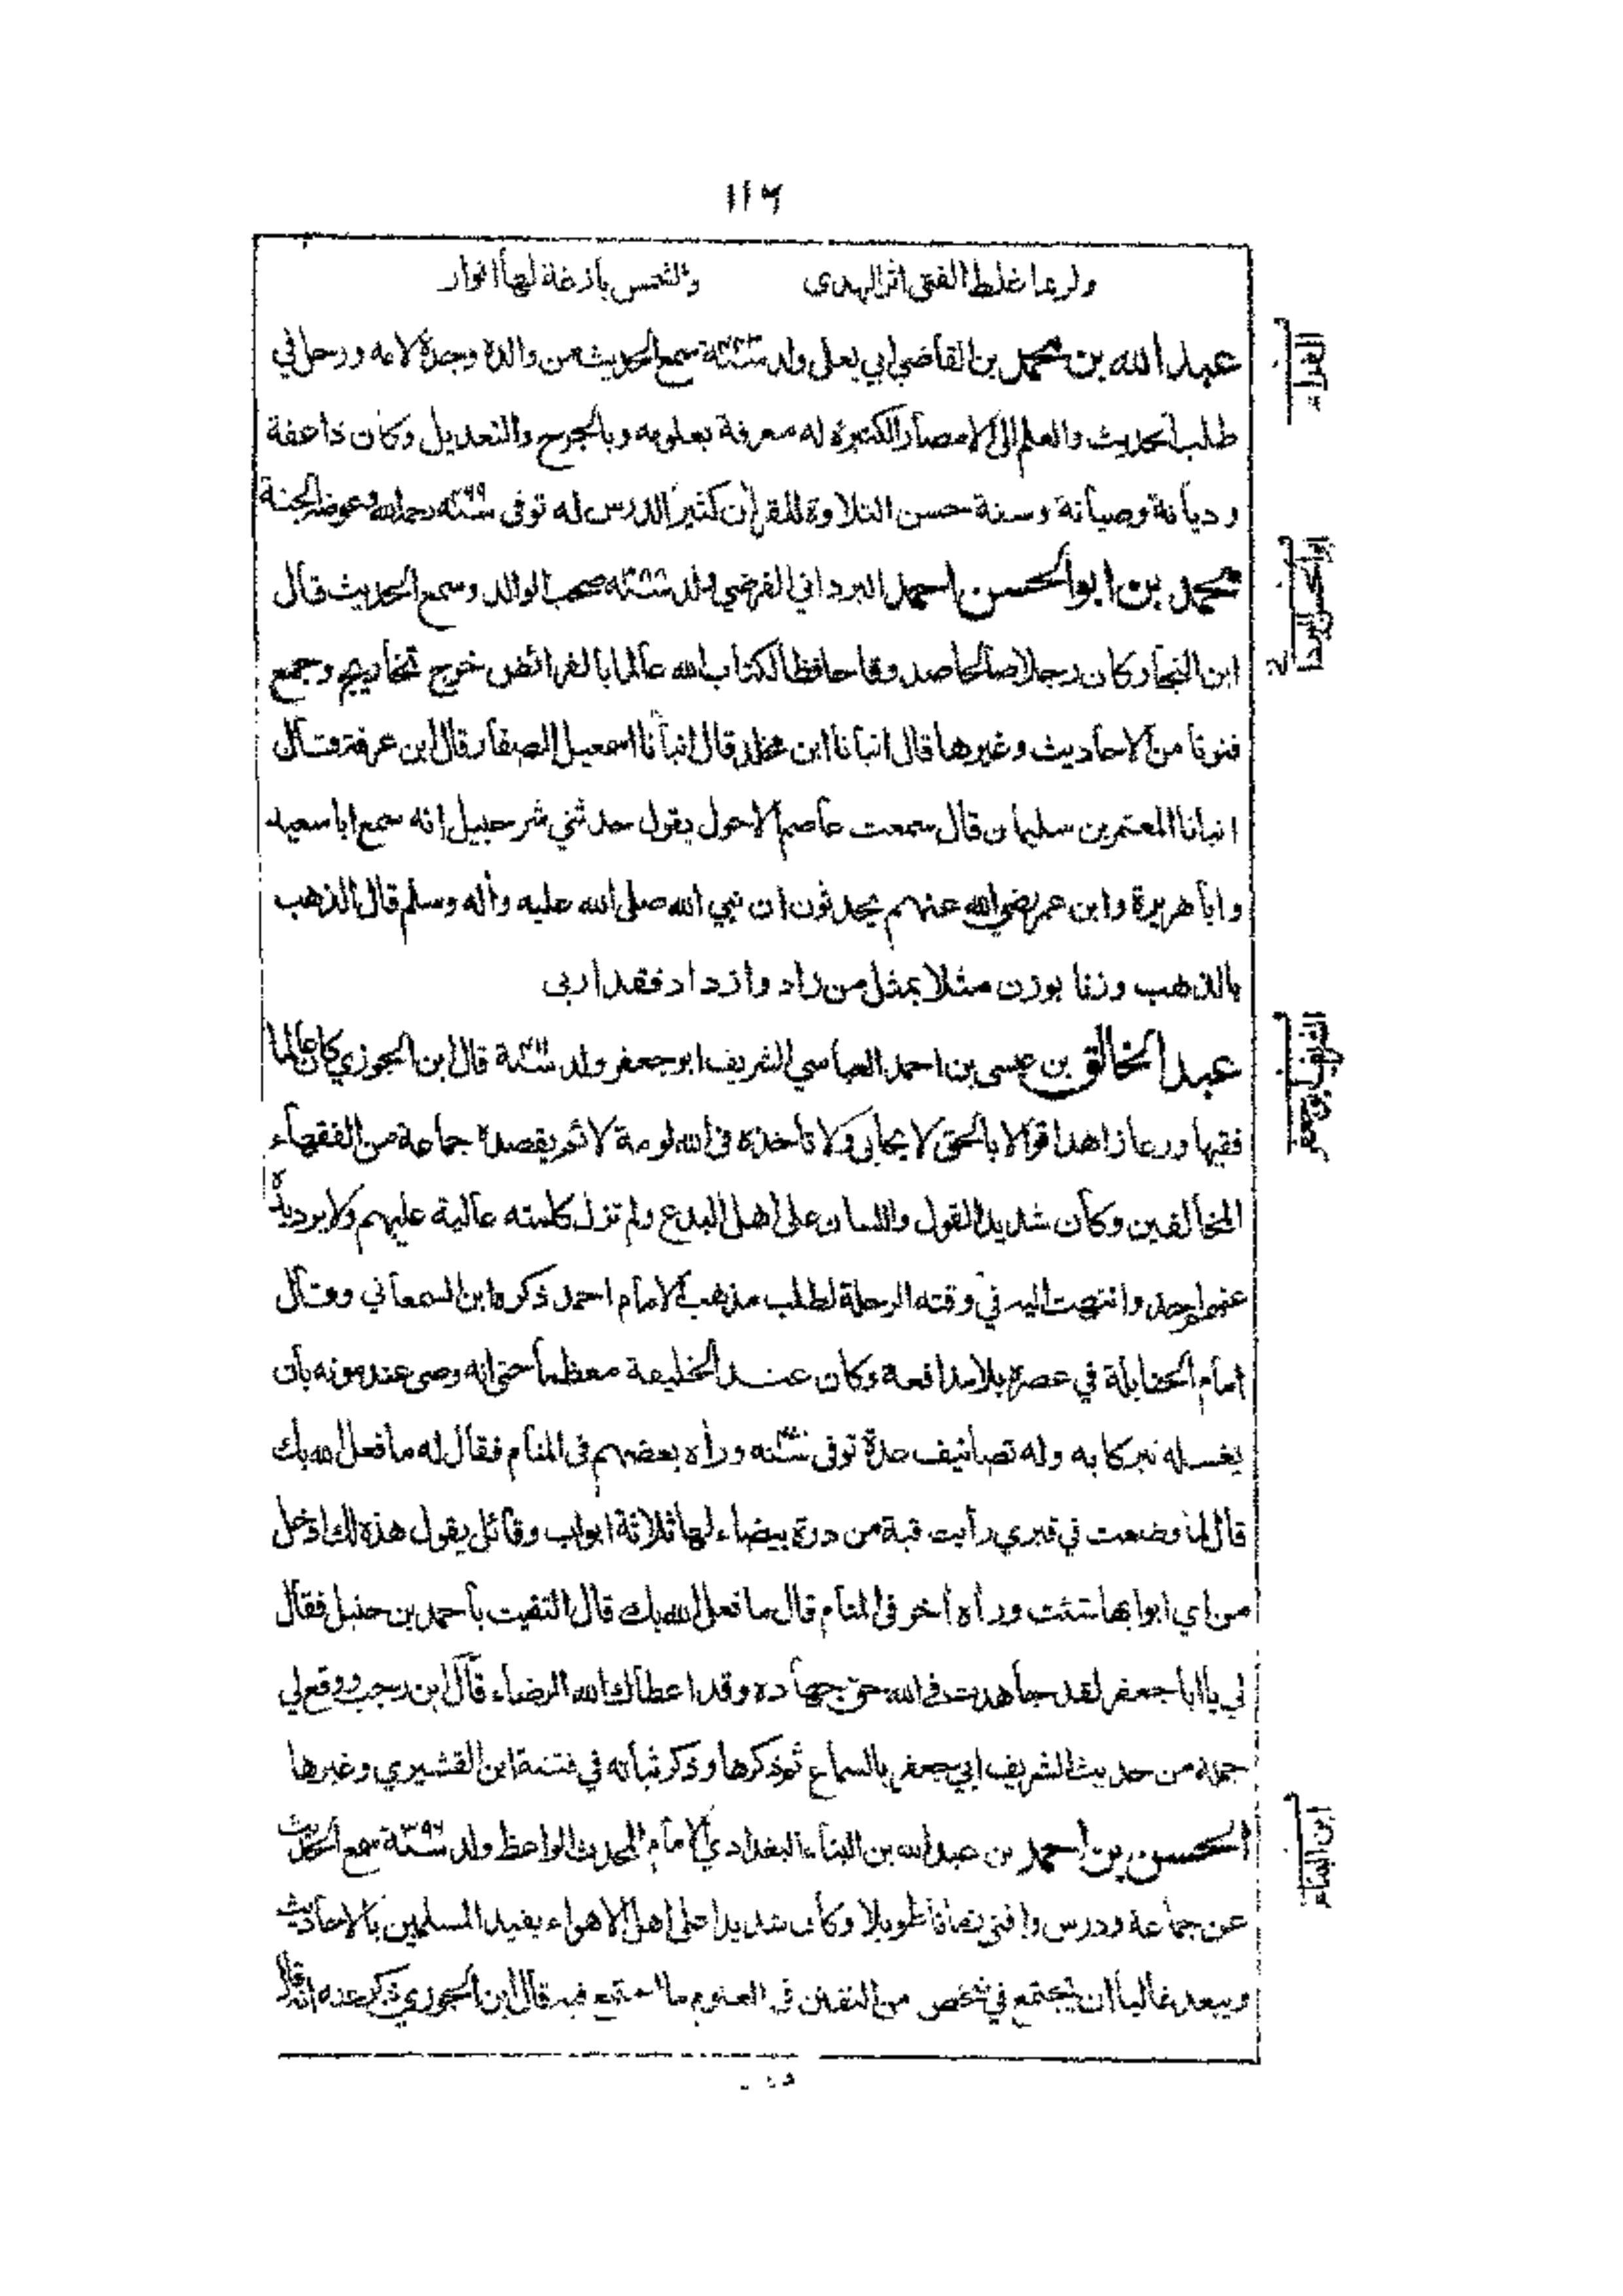 ١١٦
ولربما غلط الفتى اثر الهدى والشمس بازغة لها انوار
عبد الله بن محمد بن القاضي ابي يعلى ولد سنة سمع الحديث من والده وجده لامه ورحل في
طلب الحديث والعلم الى الامصار الكثيرة له معرفة بعلومه وبالجرح والتعديل وكان ذا عفة
وديانة وصيانة وسنة حسن التلاوة للقرأن كثير الدرس له توفى سنة رحمه الله وعوضه الجنة
محمد بن ابو الحسن احمد البرداني الفرضي ولد سنة صحب الوالد وسمع الحديث قال
ابن النجار كان رجلا صالحا صدوقا حافظا لكتاب الله عالما بالفرائض خرج تخاريج وجمع
فنونا من الاحاديث وغيرها قال انبأنا ابن مخلد قال انبأنا اسمعيل الصفار قال ابن عرفة وقال
انبانا المعتمر بن سليمان قال سمعت عاصم الاحول يقول حدثني شرحبيل انه سمع ابا سعيد
وابا هريرة وابن عمر رضي الله عنهم يحدثون ان نبي الله صلى الله عليه وأله وسلم قال الذهب
بالذهب وزنا بوزن مثلا بمثل من زاد وازداد فقد اربى
عبد الخالق بن عيسى بن احمد العباسي الشريف ابو جعفر ولد سنة قال ابن الجوزي كان عالما
فقيها ورعا زاهدا قوالا بالحق لا يحابي ولا تاخذه فى الله لومة لائم يقصده جماعة من الفقهاء
المخالفين وكان شديد القول واللسان على اهل البدع ولم تزل كلمته عالية عليهم ولا يرد يده
عنهم احد وانتهت اليه في وقته الرحلة لطلب مذهب الامام احمد ذكره ابن السمعاني وقال
امام الحنابلة في عصره بلا مدافعة وكان عند الخليفة معظما حتى انه وصى عند موته بان
يغسله تبركا به وله تصانيف عدة توفى سنة ورأه بعضهم فى المنام فقال له ما فعل الله بك
قال لما وضعت في قبري رأيت قبة من درة بيضاء لها ثلاثة ابواب وقائل يقول هذه لك ادخل
من اي ابوابها شئت ورأه أخر فى المنام قال ما فعل الله بك قال التقيت بأحمد بن حنبل فقال
لي يا ابا جعفر لقد جاهدت فى الله حق جهاده وقد اعطاك الله الرضاء قال ابن رجب ووقع لي
جملة من حديث الشريف ابي جعفر بالسماع ثم ذكرها وذكر ثباته في فتنة ابن القشيري وغيرها
الحسن بن احمد بن عبد الله بن البناء البغدادي الامام المحدث الواعظ ولد سنة ٣٩٦ سمع الحديث
عن جماعة ودرس وافتى زمانا طويلا وكان شديدا على اهل الاهواء يفيد المسلمين بالاحاديث
ويبعد غالبا ان يجتمع في شخص من التفنن فى العلوم ما اجتمع فيه قال ابن الجوزي ذكر عنه انه قال
الفراء
ابو الحسن البرداني
الشريف ابو جعفر
ابن البناء